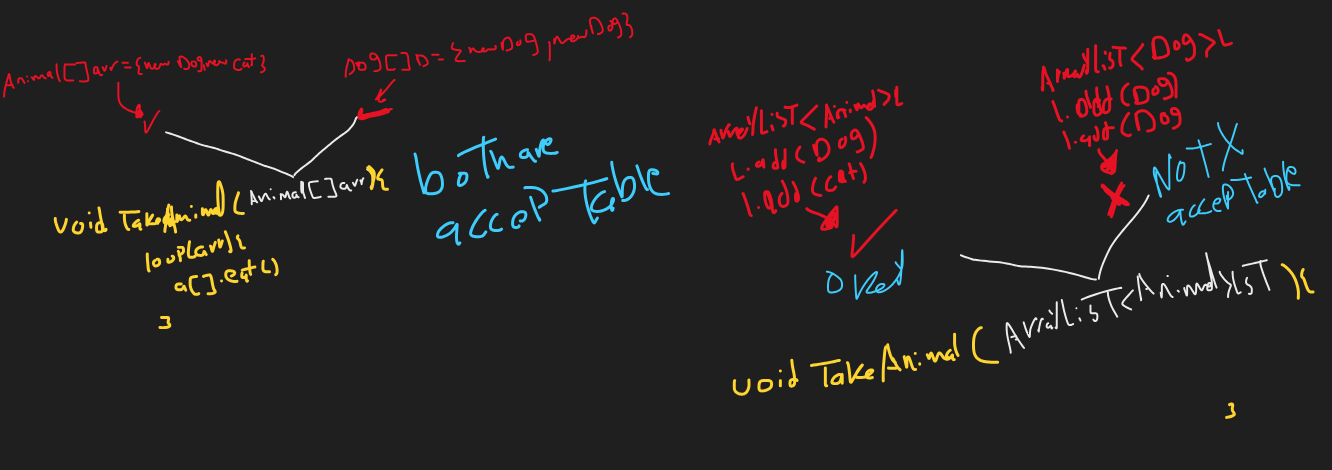 Animal[]arr={new Dog,new cat}
Dog[]D={newDog,newDog}
void TakeAnimal(Animal[]arr){
loop(arr){
a[].eat()
}
both are
acceptable
ArrayList<Animal>L
L.add(Dog)
l.add(cat)
okey
ArrayList<Dog>L
l.add(Dog)
l.add(Dog
NOT X
acceptable
void TakeAnimal(ArrayList<Animal>lST){
}